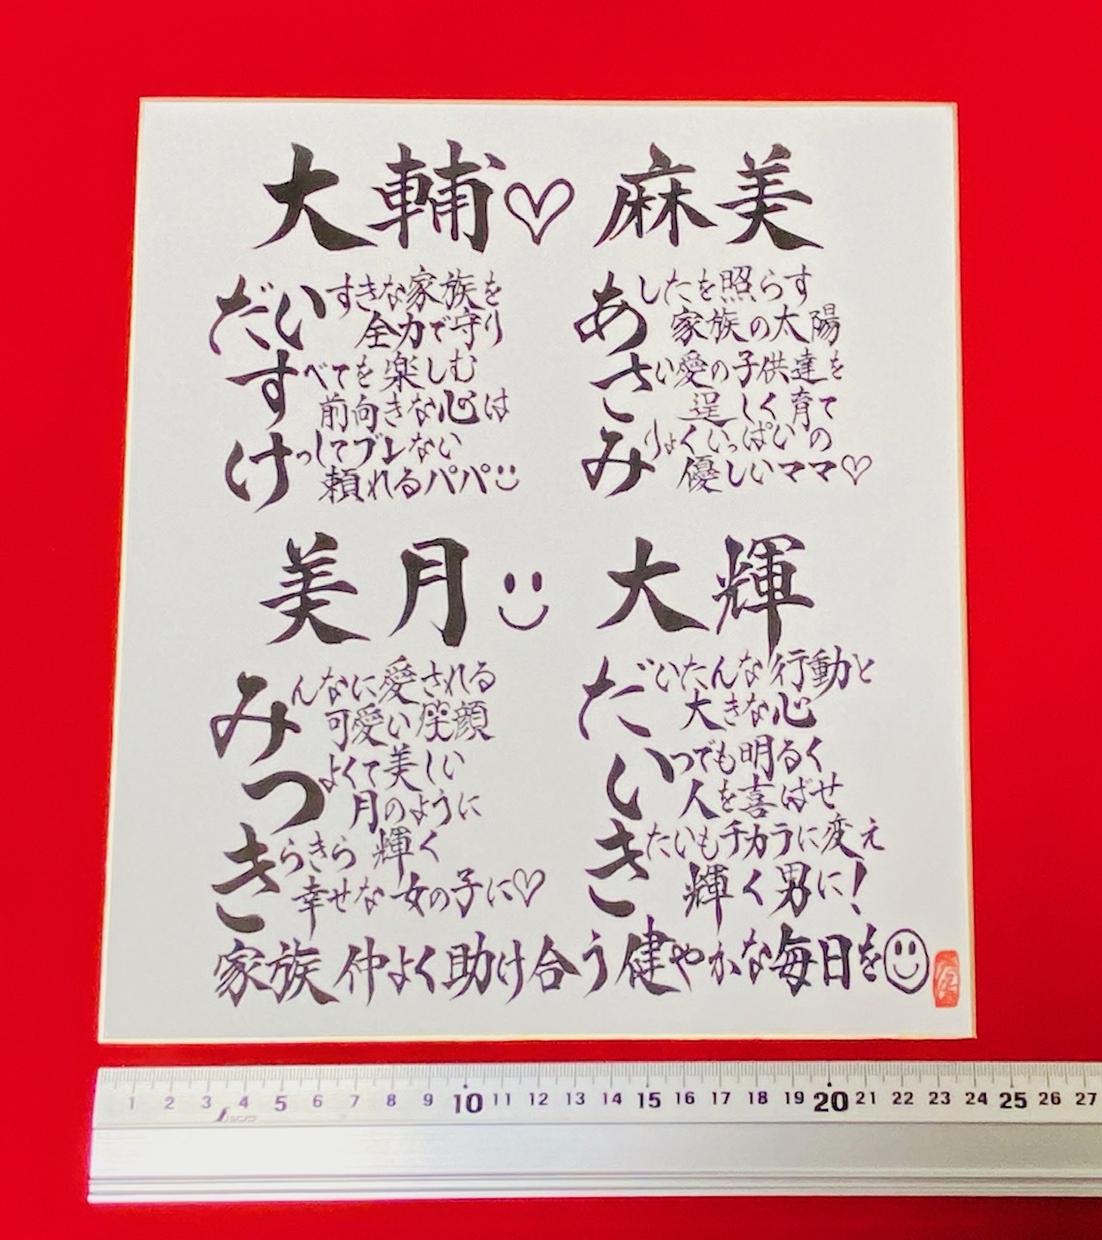 大輔♡
だいすきな家族を
全力で守り
すべてを楽しむ
前向きな心は
けっしてブレない
頼れるパパ
麻美
あしたを照らす
家族の太陽
さい愛の子供達を
逞しく育て
みりょくいっぱいの
優しいママ♡
美月
みんなに愛される
可愛い笑顔
つよくて美しい
月のように
きらきら輝く
幸せな女の子に♡
大輝
だいたんな行動と
大きな心
いつでも明るく
人を喜ばせ
きたいもチカラに変え
輝く男に!
家族仲よく助け合う健やかな毎日を
1 2 3 4 5 6 7 8 9 10 11 12 13 14 15 16 17 18 19 20 21 22 23 24 25 26 27